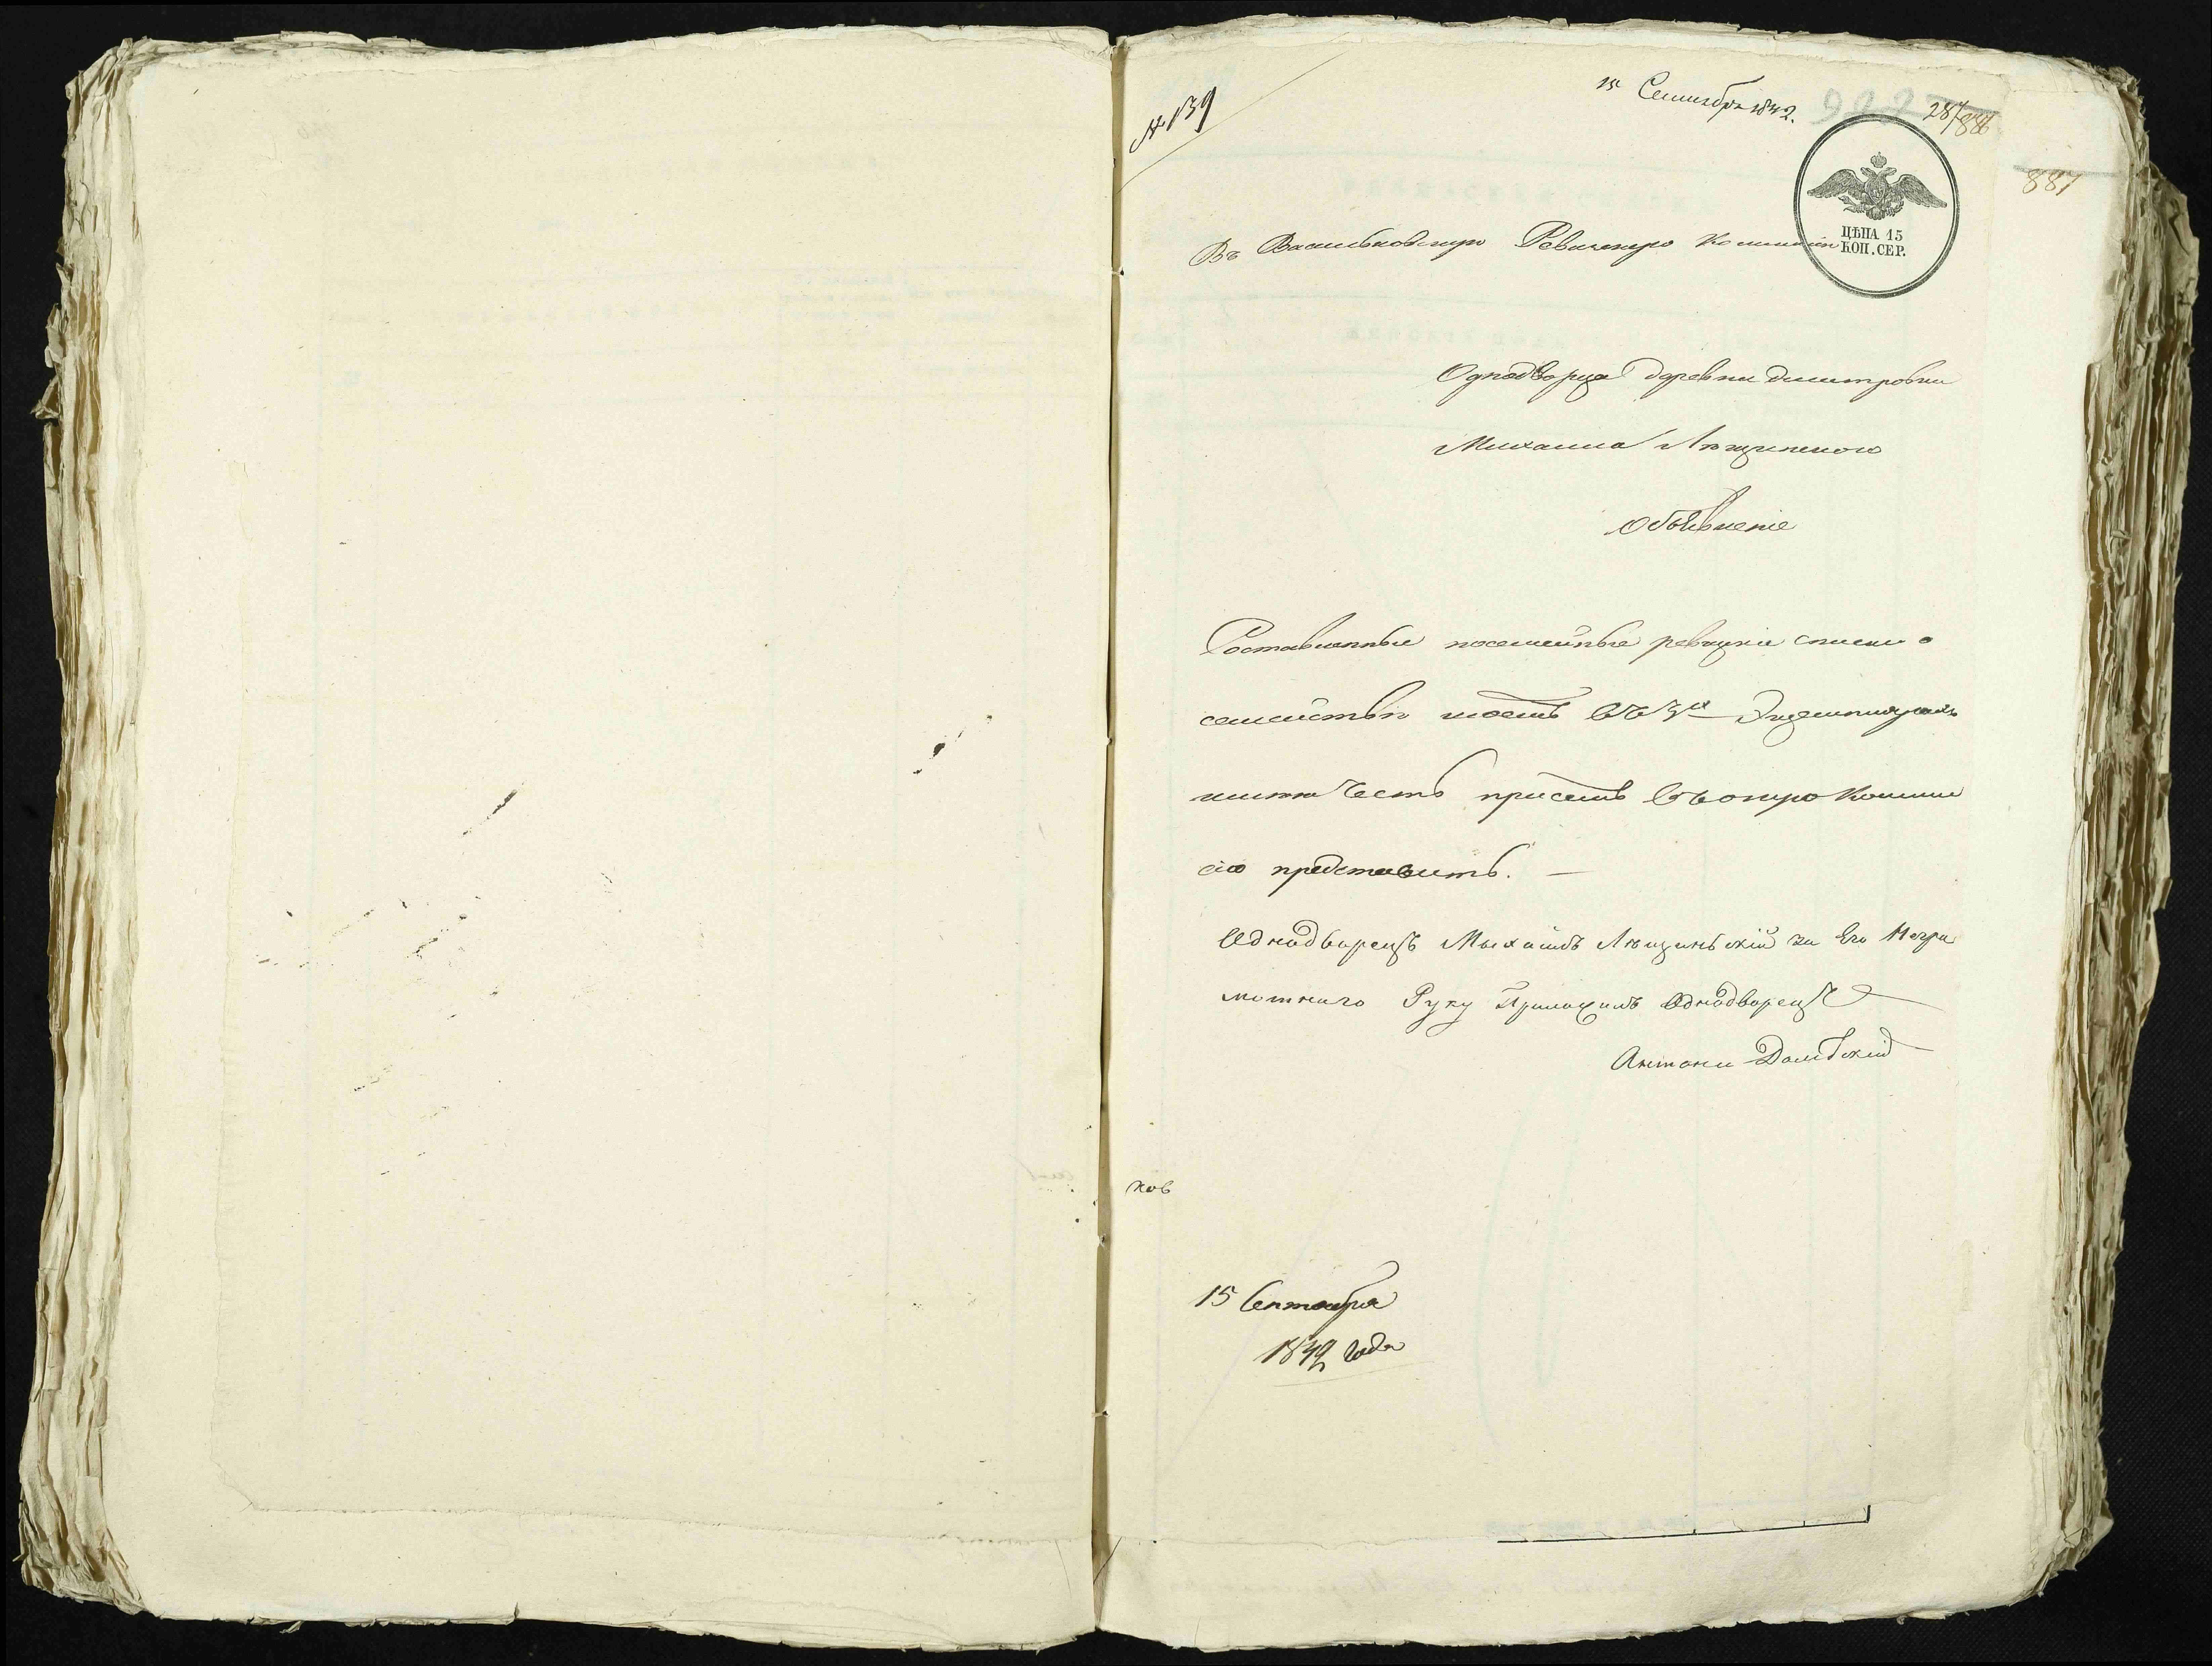 № 139
15 Сентября 1842.
922
287/886
887
ЦѢНА 15
КОП. СЕР.
Въ Васильковскую Ревизскую Коммисію
Однодворца деревни Димитровки
Михаила Лѣщинского
Объявленіе
Составленные посемейные ревизкіе списки о
семействѣ моемъ въ 3х Экземплярахъ
имѣю честь присемъ въ оную Комми
сію представить. —
Однодворецъ Михаилъ Лѣщинскій за Его Негра
мотнаго Руку Приложилъ Однодворецъ
Антони Домбскій
ков
15 Сентября
1842 года